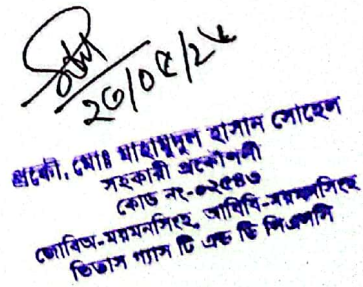 ২০/০৫/২৫
প্রকৌ, মোঃ মাহামুদুল হাসান সোহেল
সহকারী প্রকৌশলী
কোড নং-০২৫৪৩
জোবিঅ-ময়মনসিংহ, আবিবি-ময়মনসিংহ
তিতাস গ্যাস টি এন্ড ডি পিএলসি